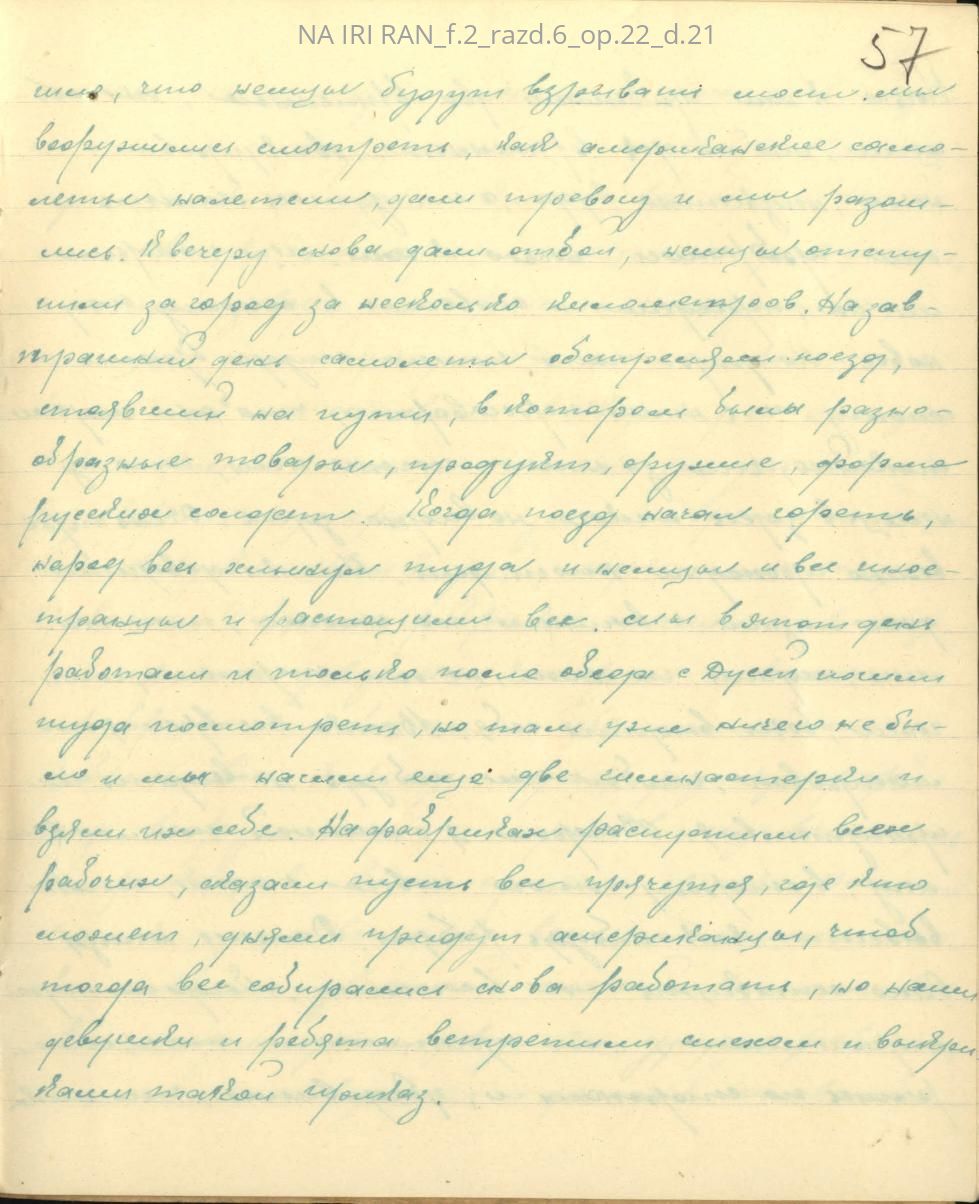 NA IRI RAN_f.2_razd.6_op.22_d.21
57
что немцы будут взрывать мост. мы
вооружились смотреть, как американские само-
леты налетели, дали тревогу и мы разош-
лись. К вечеру снова дали отбой, немцы отсту-
пили за город за несколько километров. На зав-
трашний день самолеты обстреляли поезд,
стоявший на пути, в котором были разно-
образные товары, продукт, оружие, форма
русских солдат. Когда поезд начал гореть,
народ весь хлынул туда и немцы и все инос-
транцы и растащили все. мы в этот день
работали и только после обеда с Дусей пошли
туда посмотреть, но там уже ничего не бы-
ло и мы нашли еще две гимнастерки и
взяли их себе. На фабриках распустили всех
рабочих, сказали пусть все прячутся, где кто
может, днями придут американцы, чтоб
тогда все собирались снова работать, но наши
девушки и ребята встретили смехом и выкри-
ками такой приказ.